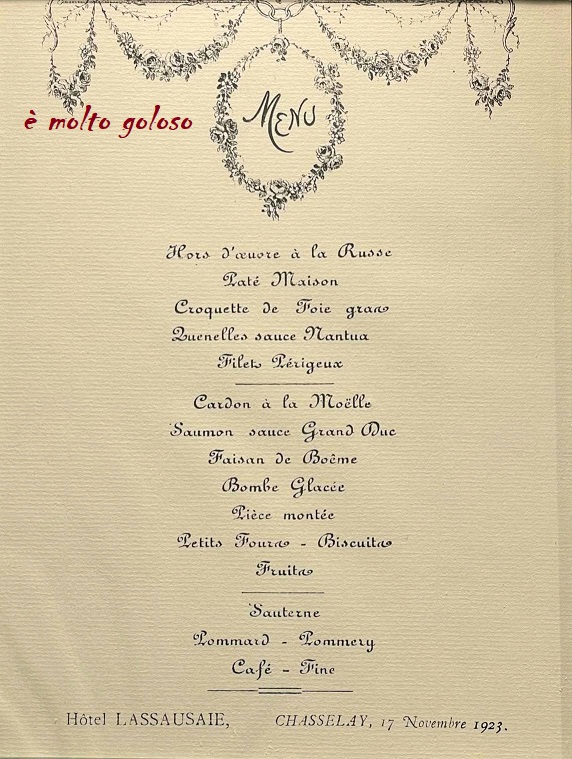 MENU
è molto goloso
Hors d'œuvre à la Russe
Paté Maison
Croquette de Foie gras
Quenelles sauce Nantua
Filets Périgeux
Cardon à la Moëlle
Saumon sauce Grand Duc
Faisan de Boême
Bombe Glacée
Pièce montée
Petits Fours - Biscuits
Fruits
Sauterne
Pommard - Pommery
Café - Fine
Hôtel LASSAUSAIE, CHASSELAY, 17 Novembre 1923.